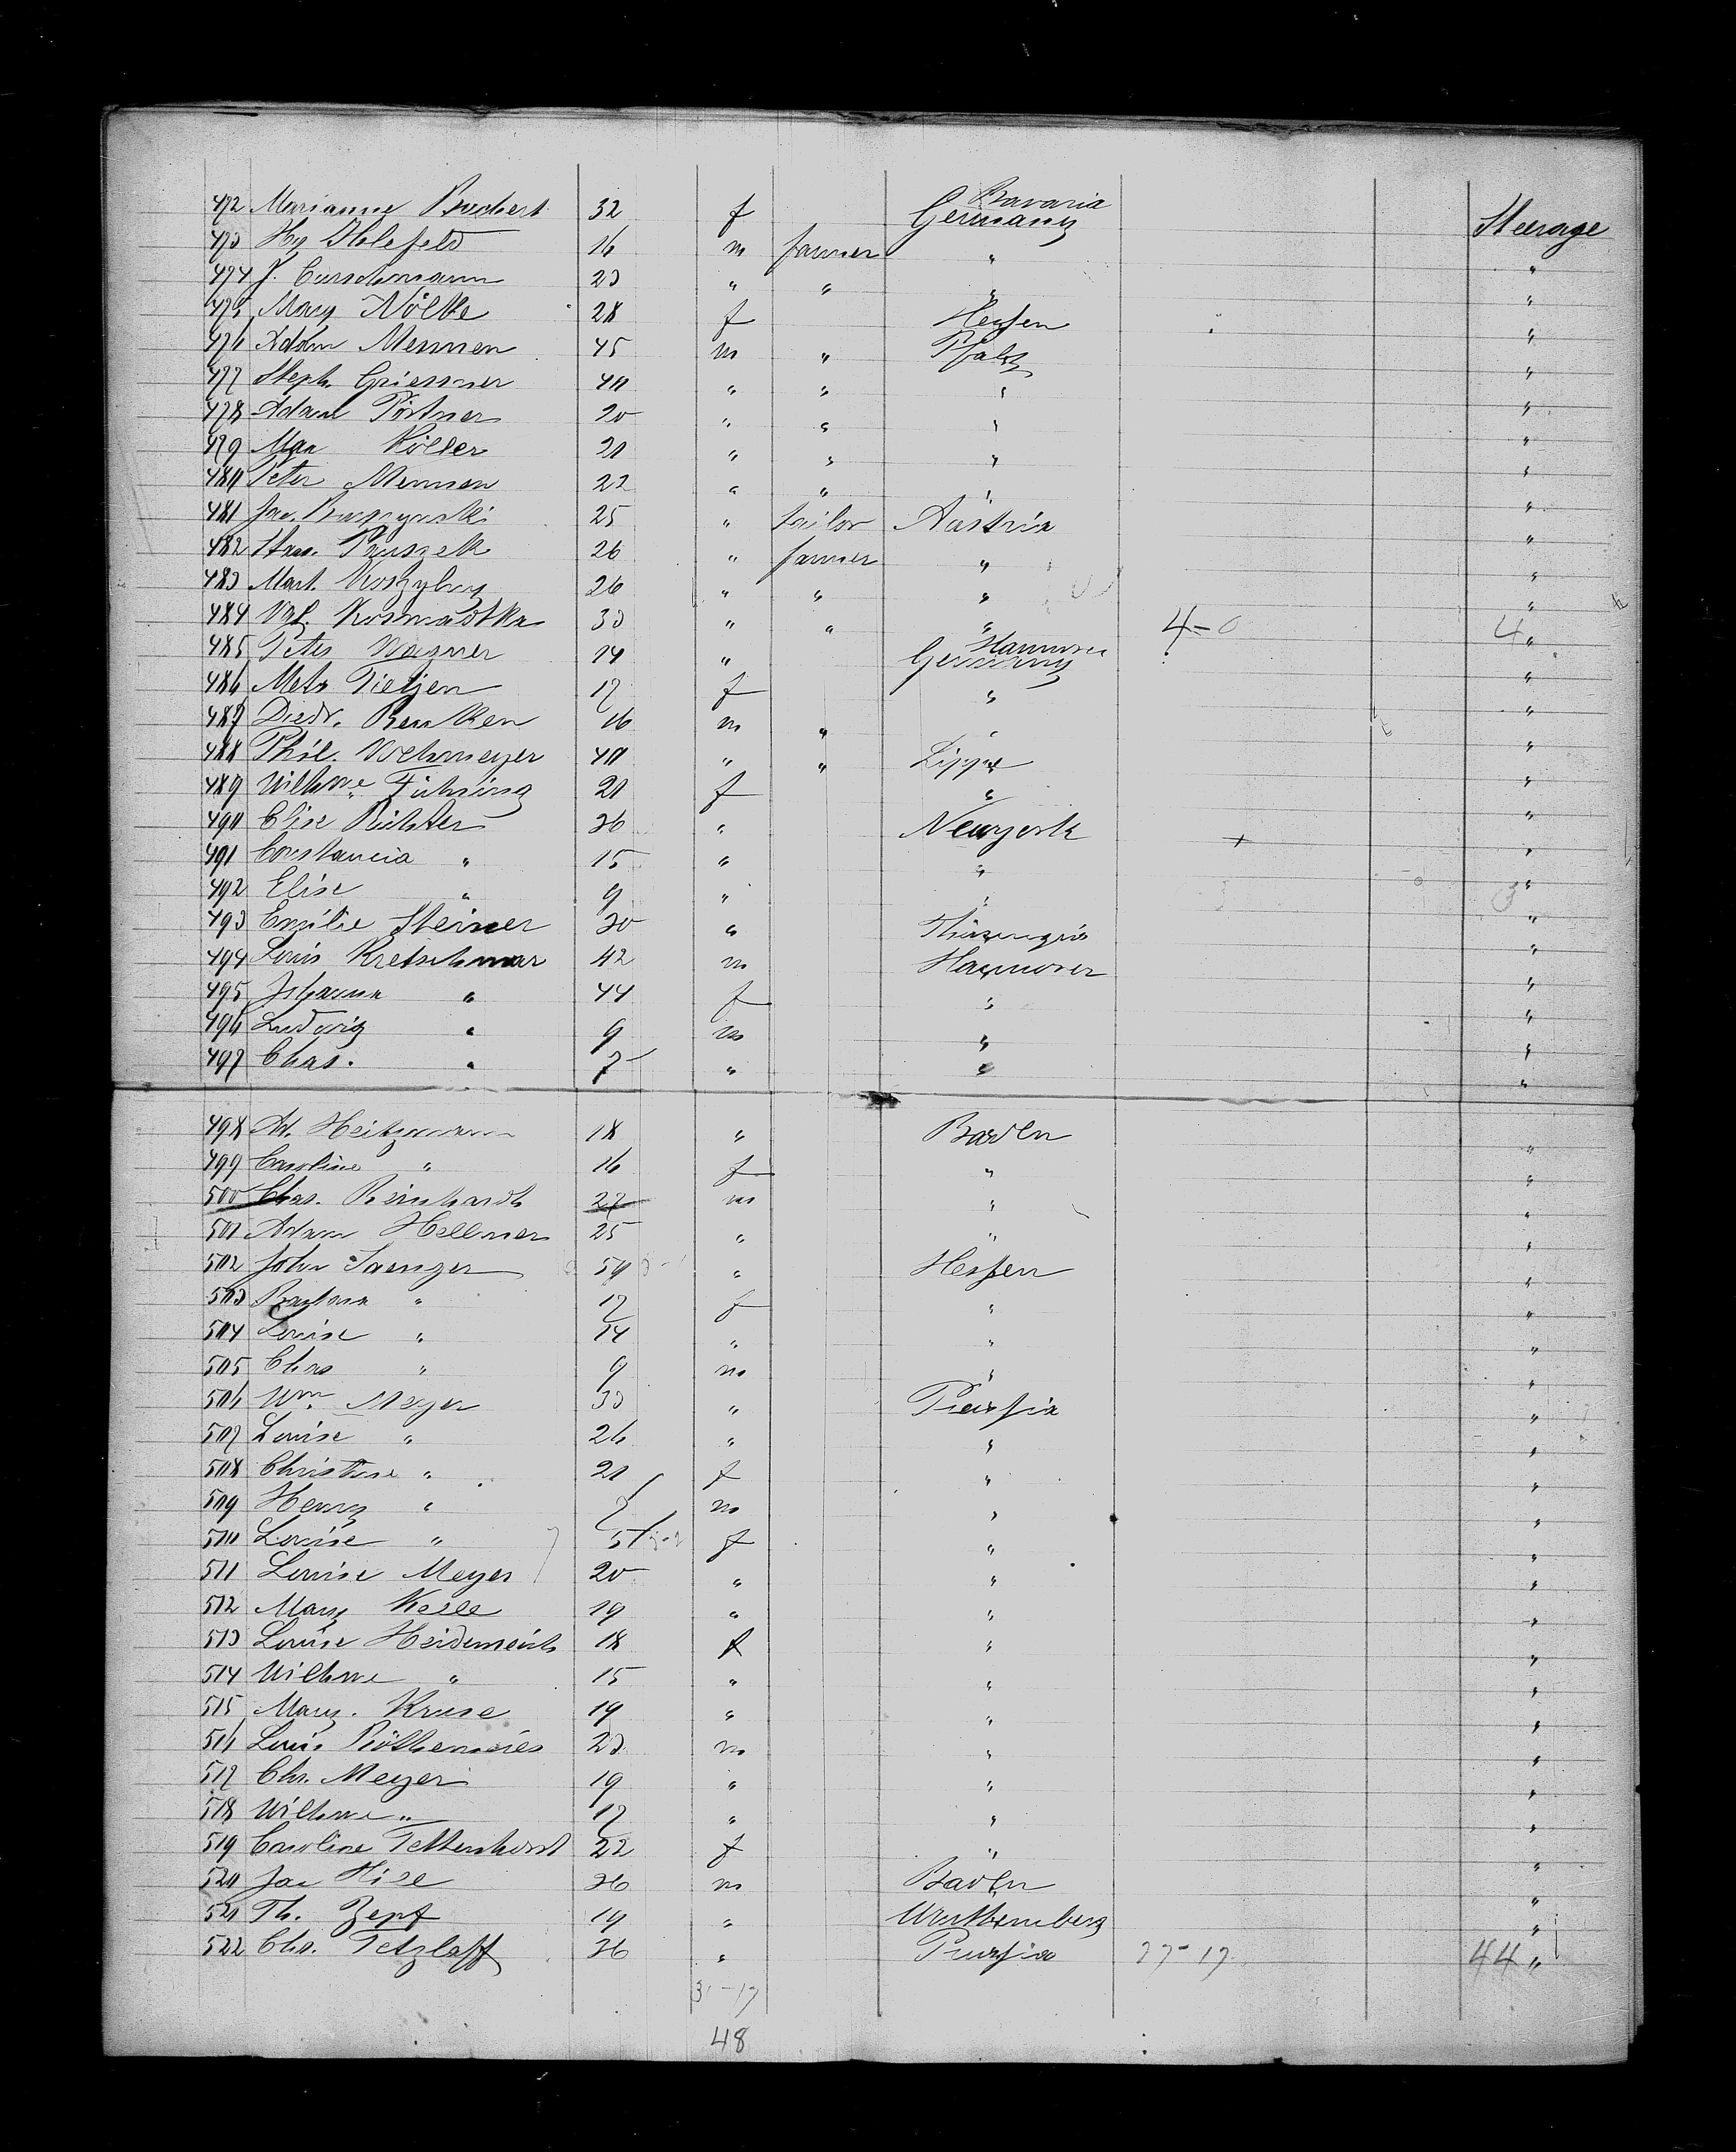 472 Marianne Buchert 32 f Bavaria Germany Steerage
473 Hy Ihlefeld 16 m farmer " "
474 J. Curschmann 23 " " " "
475 Mary Nölke 28 f Hessen "
476 Adam Mennen 45 m " Pfalz "
477 Steph. Griessner 40 " " " "
478 Adam Pörtner 20 " " " "
479 Max Köller 21 " " " "
480 Peter Mennen 22 " " " "
481 Jac. 25 " tailor Austria "
482 26 " farmer " "
483 Mart. 26 " " " "
484 30 " " " 4-0 4 "
485 Peter Wagner 14 " Hannover Germany "
486 Meta Tietjen 17 f " "
487 Diedr. Renken 16 m " " "
488 Phil. 40 " " Lippe "
489 Wilhme Führing 21 f " "
490 Elise Richter 36 " Newyork + "
491 Constancia " 15 " " "
492 Elise " 9 " " 3 "
493 Emilie Steiner 20 " "
494 Louis Kretschmar 42 m Hannover "
495 Johanna " 44 f " "
496 Ludwig " 9 m " "
497 Chas. " 7 " " "
498 Ad. Heitzmann 18 " Baden "
499 Caroline " 16 f " "
500 Chas. Reinhardt 27 m " "
501 Adam Hellmer 25 " " "
502 John Saenger 59 " Hessen "
503 Barbara " 17 f " "
504 Louise " 14 " " "
505 Chas " 9 m " "
506 Wm. Meyer 33 " Prussia "
507 Louise " 26 " " "
508 Christine " 21 f " "
509 Henry " 7 m " "
510 Louise " 5 f " "
511 Louise Meyer 20 " " "
512 Mary 19 " " "
513 Louise 18 f " "
514 Wilhme " 15 " " "
515 Mary. Kruse 19 " " "
516 Louis 23 m " "
517 Chr. Meyer 19 " " "
518 Wilhme " 17 " " "
519 Caroline Tettenhorst 22 f " "
520 Jac Hise 36 m Baden "
521 Th. Zepf 19 " Württemberg "
522 Chr. Tetzlaff 36 " Prussia 27-17 44 "
31-17
48